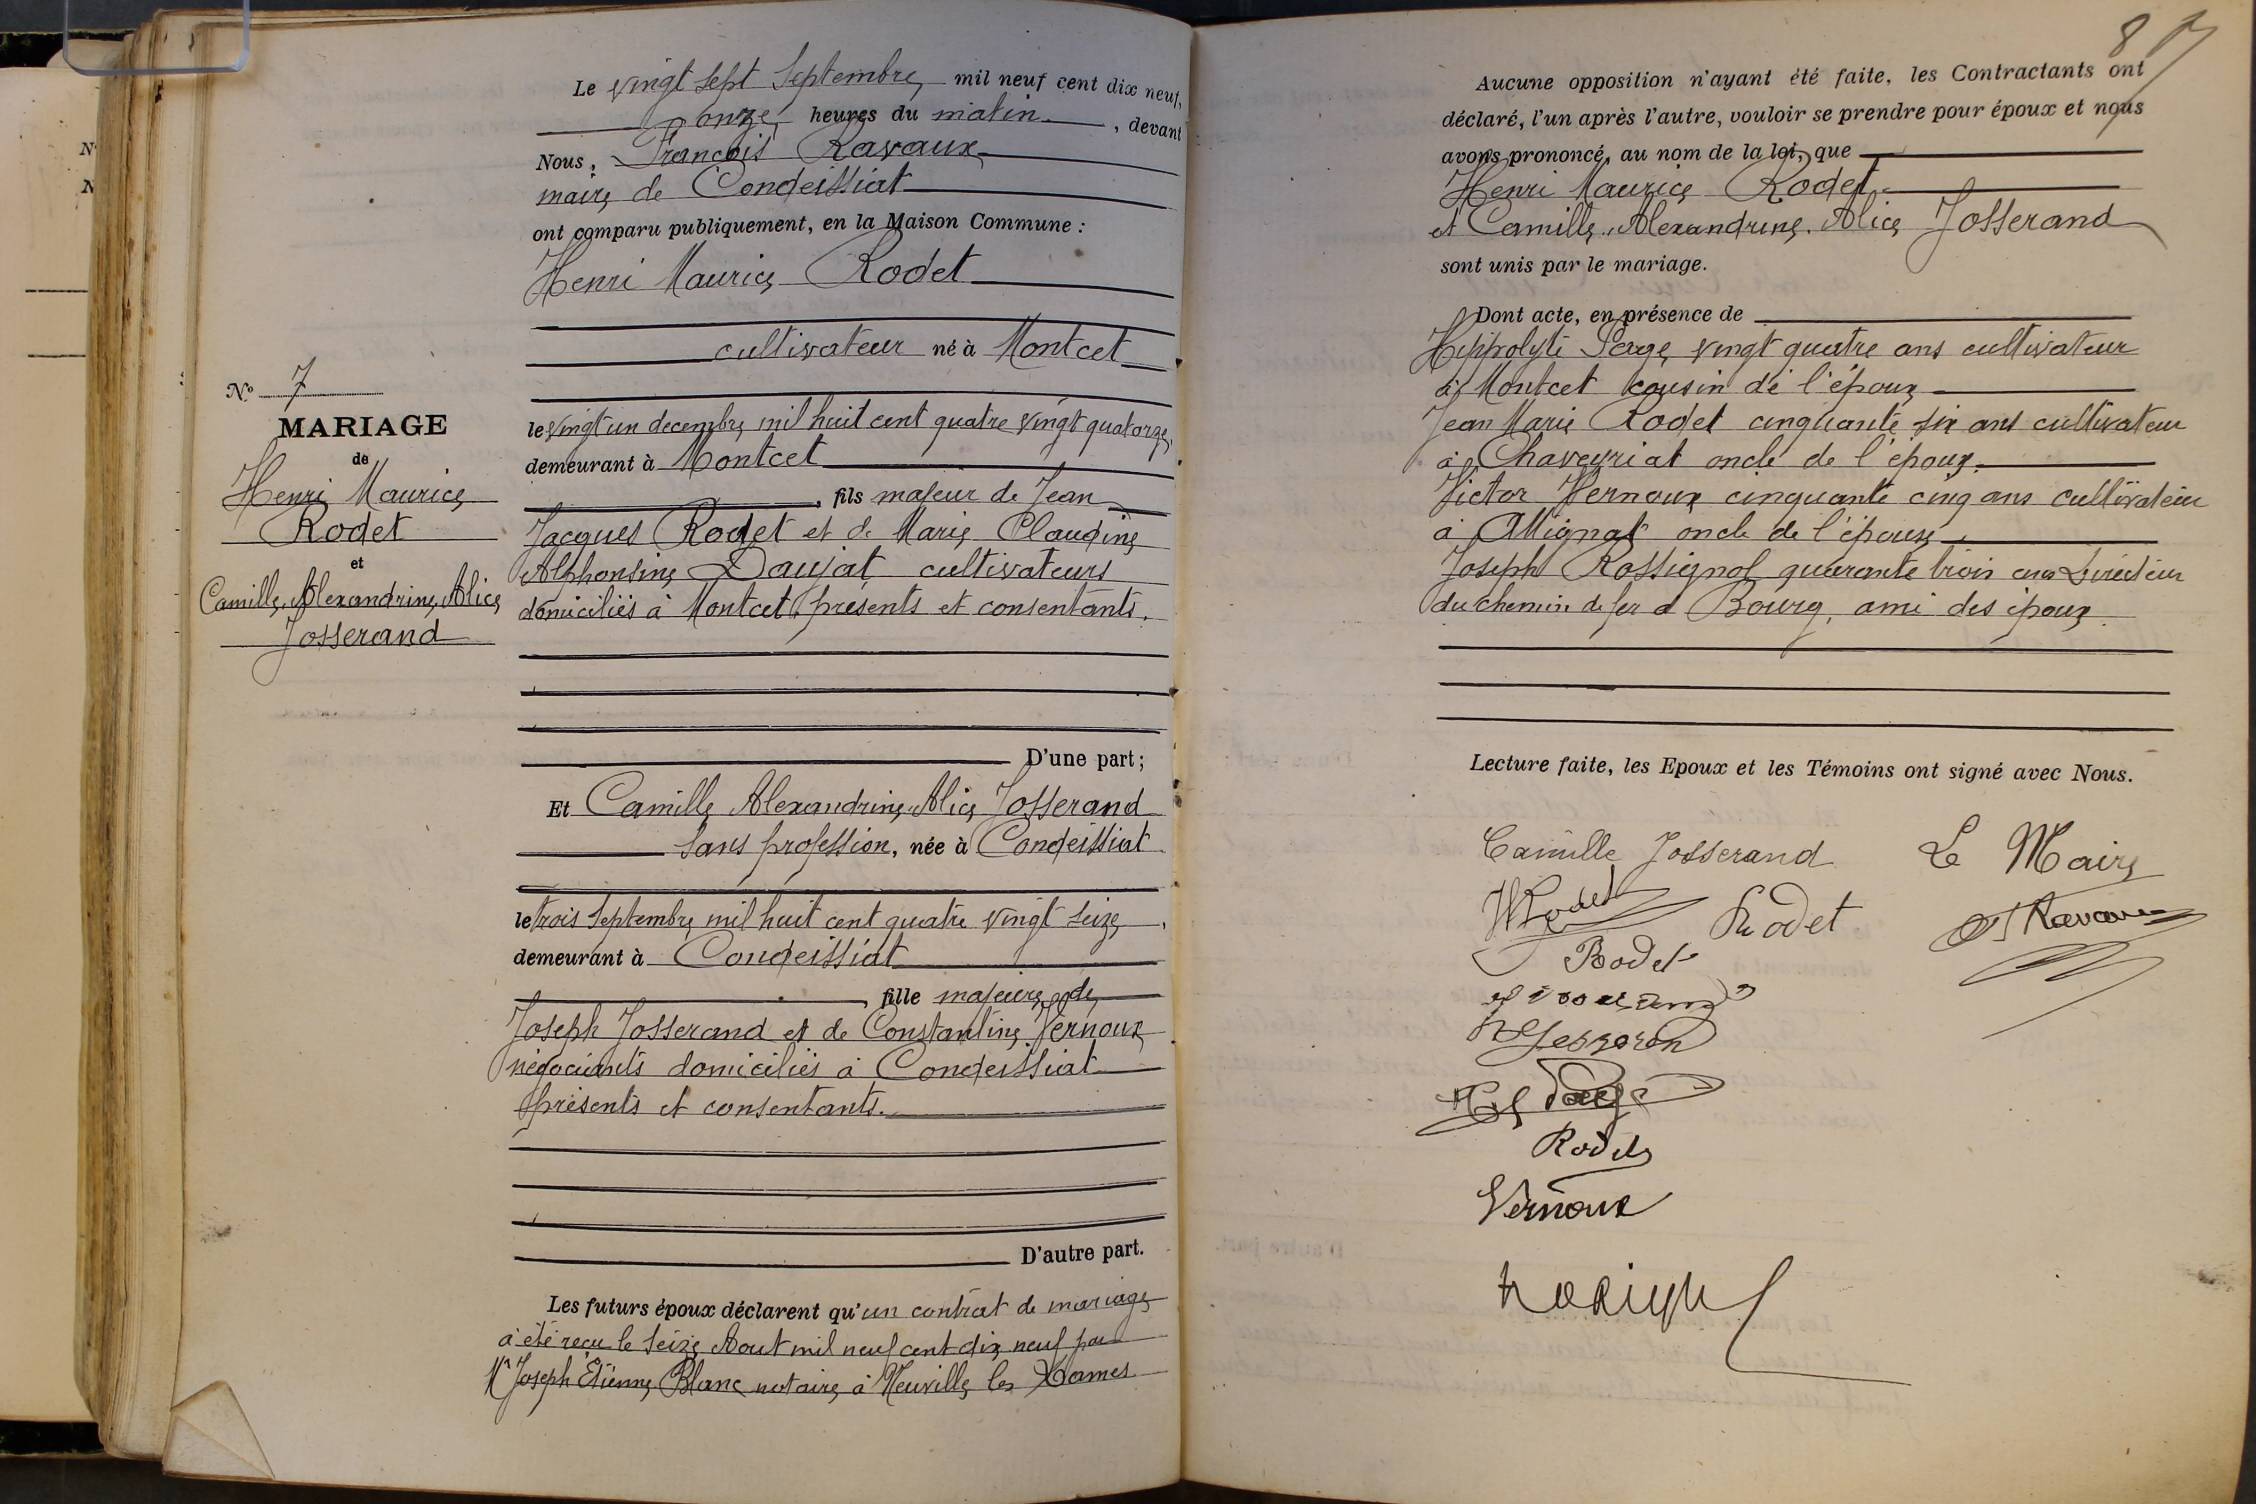 Le vingt sept Septembre mil neuf cent dix neuf,
onze heures du matin, devant
Nous, François Ravaux
maire de Condeissiat
ont comparu publiquement, en la Maison Commune :
Henri Maurice Rodet
cultivateur né à Montcet
le vingt un decembre mil huit cent quatre vingt quatorze,
demeurant à Montcet
, fils majeur de Jean
Jacques Rodet et de Marie Claudine
Alphonsine Daujat cultivateurs
domiciliés à Montcet, présents et consentants.
D'une part;
N° 7
MARIAGE
de
Henri Maurice
Rodet
et
Camille, Alexandrine, Alice
Josserand
Et Camille Alexandrine Alice Josserand
sans profession, née à Condeissiat
le trois Septembre mil huit cent quatre vingt seize,
demeurant à Condeissiat
, fille majeure de
Joseph Josserand et de Constantine Vernoux
négociants domiciliés à Condeissiat
présents et consentants.
D'autre part.
Les futurs époux déclarent qu'un contrat de mariage
a été reçu le seize Aout mil neuf cent dix neuf par
Me Joseph Etienne Blanc notaire à Neuville les Dames
87
Aucune opposition n'ayant été faite, les Contractants ont
déclaré, l'un après l'autre, vouloir se prendre pour époux et nous
avons prononcé, au nom de la loi, que
Henri Maurice Rodet
et Camille, Alexandrine, Alice Josserand
sont unis par le mariage.
Dont acte, en présence de
Hippolyte Parge vingt quatre ans cultivateur
à Montcet cousin de l'époux
Jean Marie Rodet cinquante six ans cultivateur
à Chaveyriat oncle de l'époux.
Victor Vernoux cinquante cinq ans cultivateur
à Attignat oncle de l'épouse
Joseph Rossignol quarante trois ans Directeur
du chemin de fer à Bourg, ami des époux.
Lecture faite, les Epoux et les Témoins ont signé avec Nous.
Camille Josserand Le Maire
HRodet Rodet Ravaux
Rodet
Rodet
Vernoux